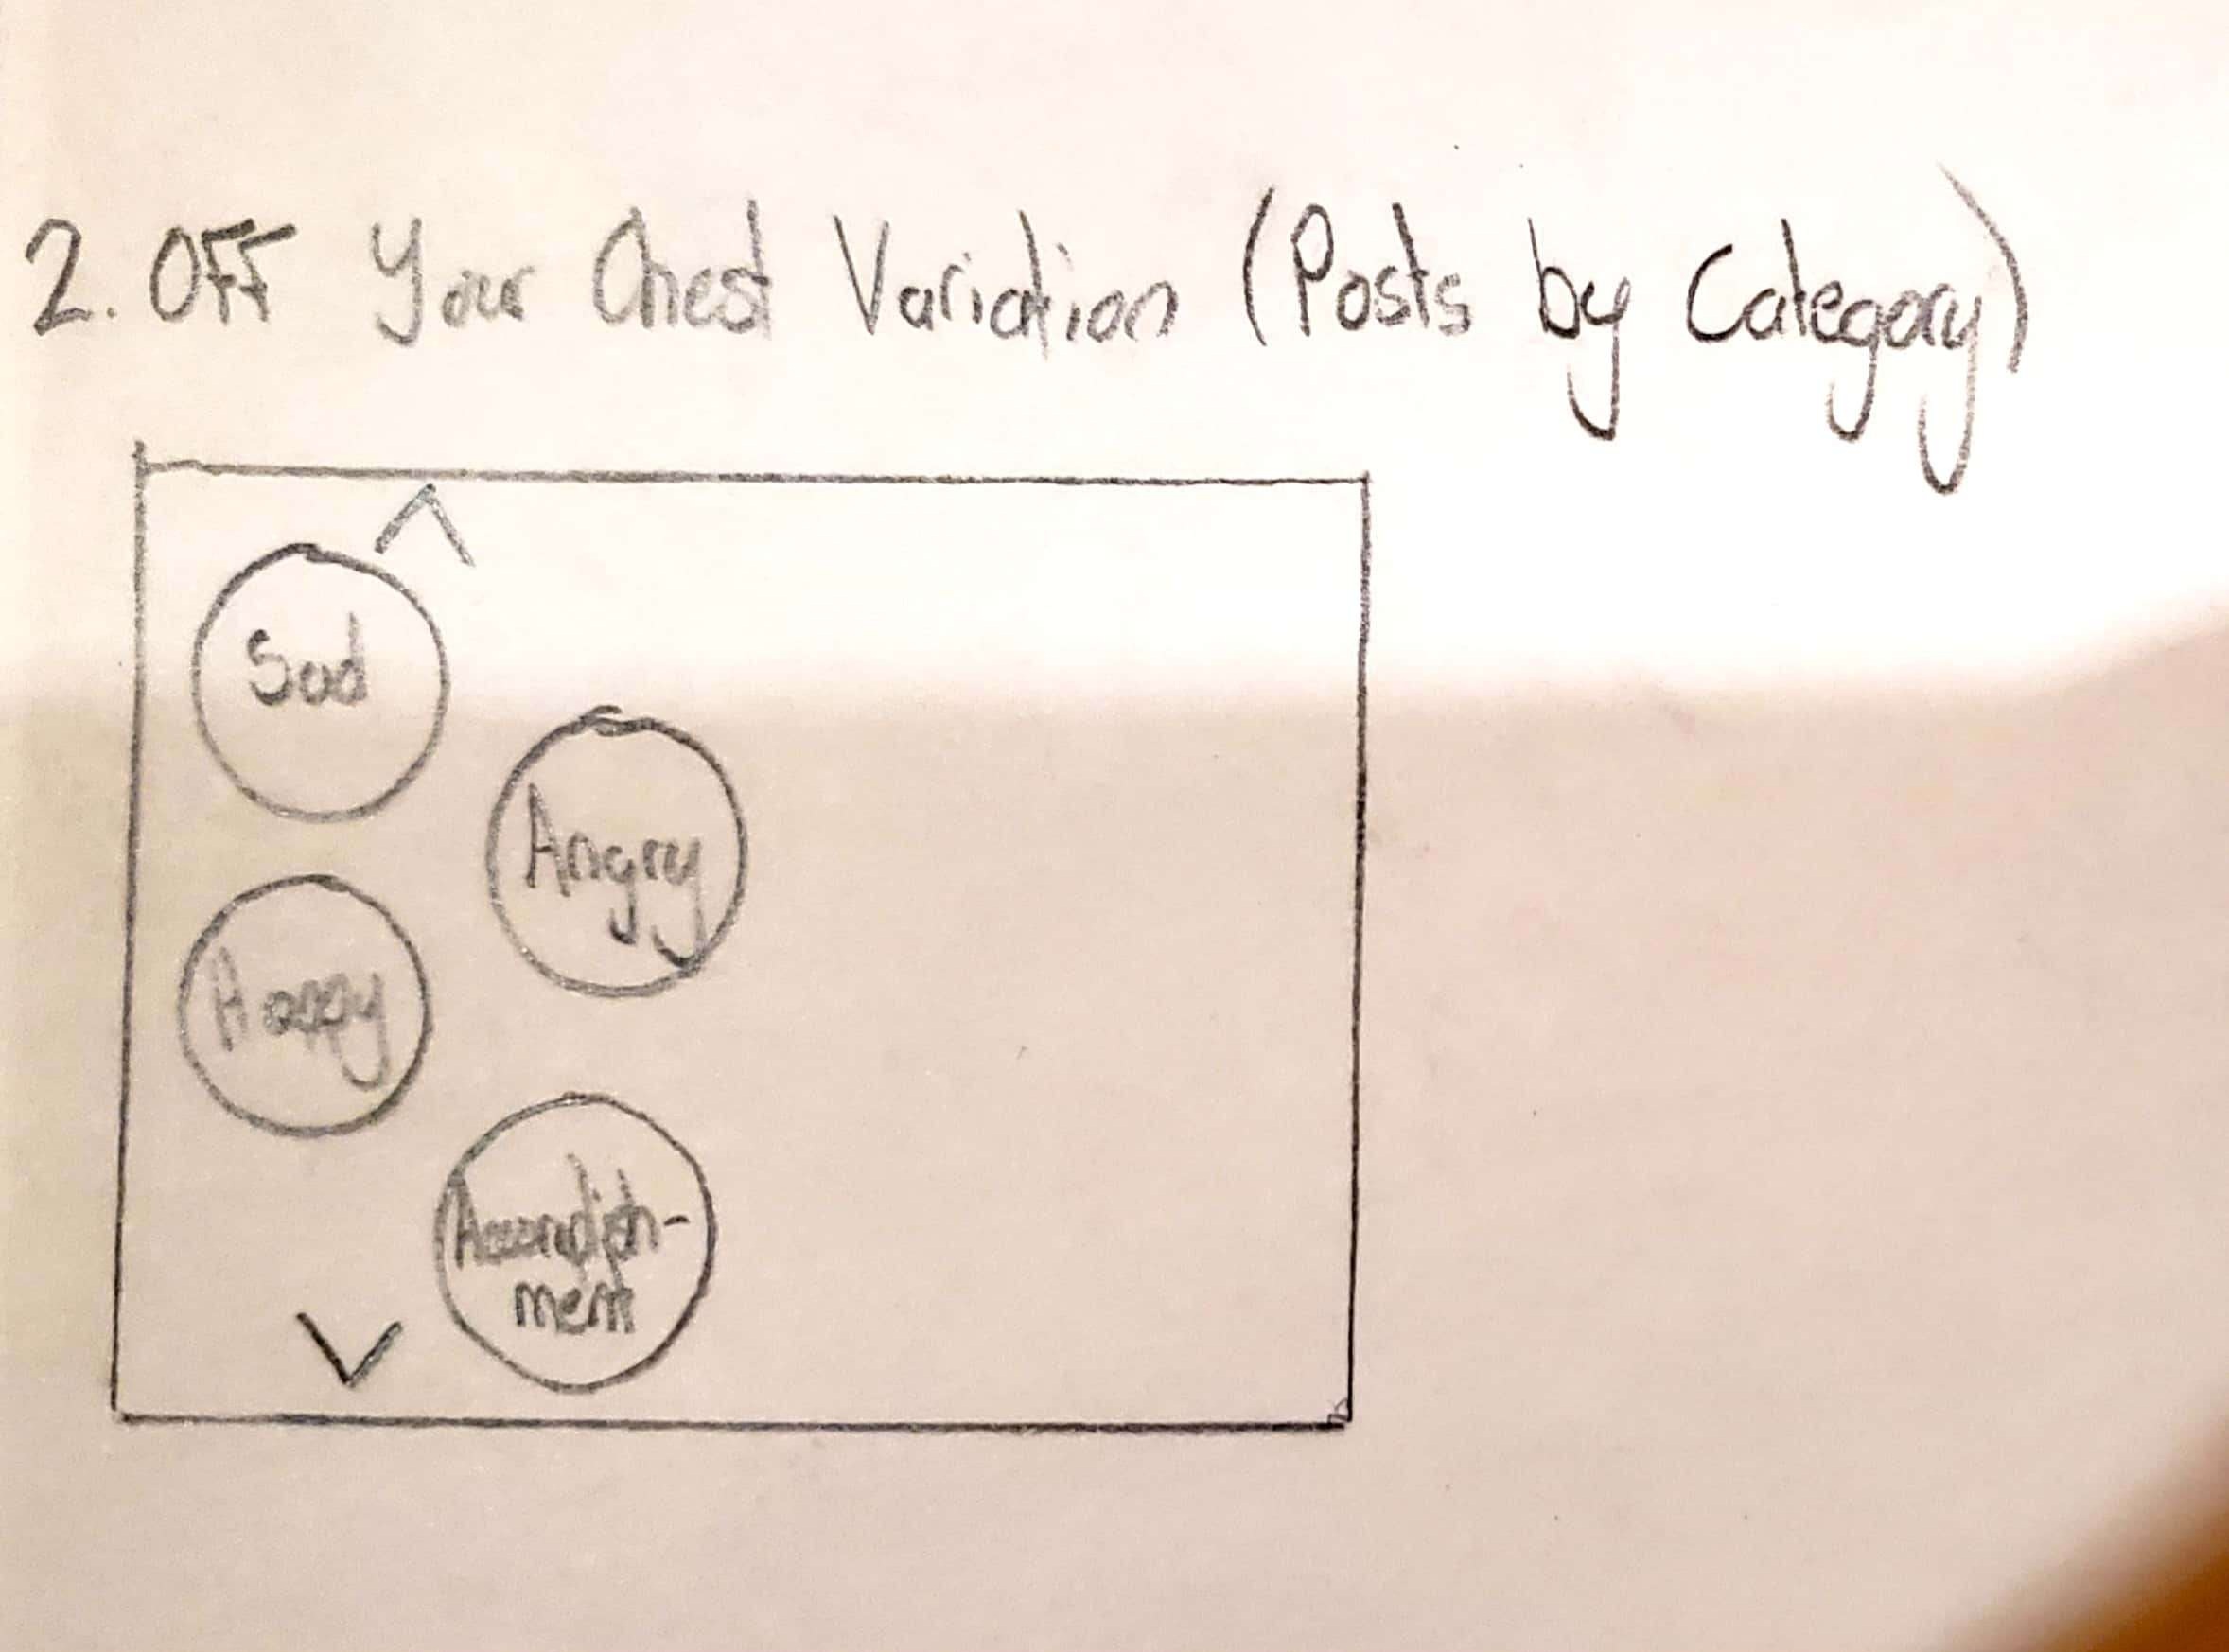 2. Off Your Chest Variation (Posts by Category)
Sad
Angry
Happy
Accomplish-
ment